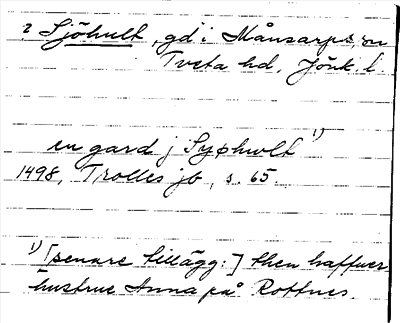 ? Sjöhult, gd i Månsarps sn
Tveta hd, Jönk. l.
en gard j Syøhwlt 1)
1498, Trolles jb, s. 65
1) [senare tillägg:] then haffwer
hustrue Anna på Rottnes.